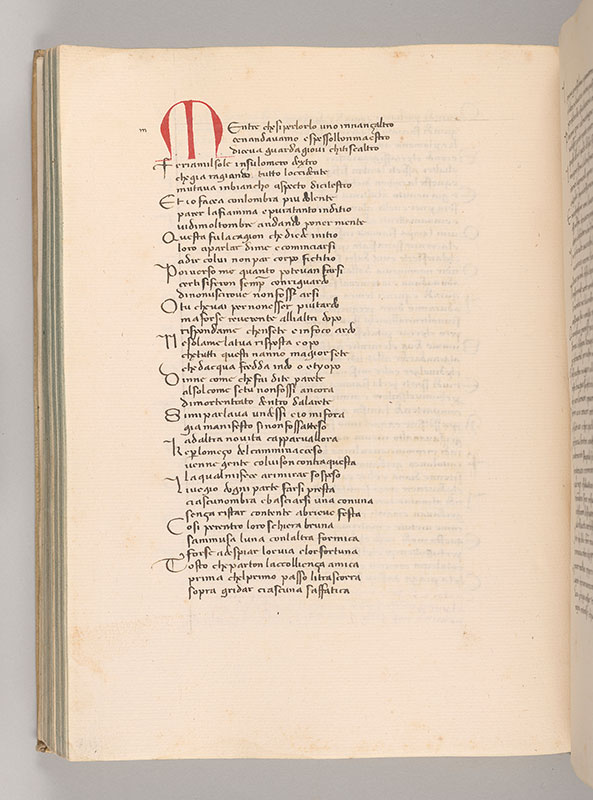 m
MEntre chesiperlorlo uno innançaltro
cenandavamo espessolbonmaestro
diceva guarda giovi chitiscaltro
Feriamilsole insulomero dextro
chegia ragiando tutto loccidente
mutava inbiancho aspecto dicilestro
Et io facea conlombra piu dolente
parer lafiamma epuratanto inditio
vidimoltombre andando poner mente
Questa fu lacagion chediede initio
loro aparlar dime ecominciarsi
adir colui non par corpo fictitio
Poiverso me quanto potevan farsi
certisiferon semp conriguardo
dinonuscirove nonfosser arsi
O tu chevai per nonesser piutardo
maforse reverente allialtri dopo
rispondame chensete einfoco ardo
Nesolame latua risposta euopo
chetutti questi nanno magior sete
chedacqua fredda indo o etyopo
Dinne come chefai dite parete
alsol come setu nonfossi ancora
dimortentrato dentro dalarete
Simiparlava undessi eiomifora
gia manifesto sinonfossatteso
adaltra novita capparvallora
Keperlomeço delcamminacceso
venne gente colvison contraquesta
laqual mifece arimirar sospeso
Iuegio dogni parte farsi presta
ciascunombra ebasciarsi una conuna
sença ristar contente abrieve festa
Cosi perentro loro schiera bruna
sammusa luna conlaltra formica
forse adespiar lorvia elorfortuna
Tosto cheparton laccollença amica
prima chelprimo passo litrascorra
sopra gridar ciascuna saffatica